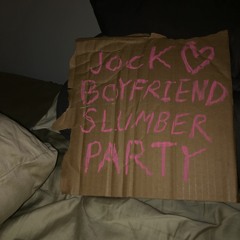 JOCK ♡
BOYFRIEND
SLUMBER
PARTY